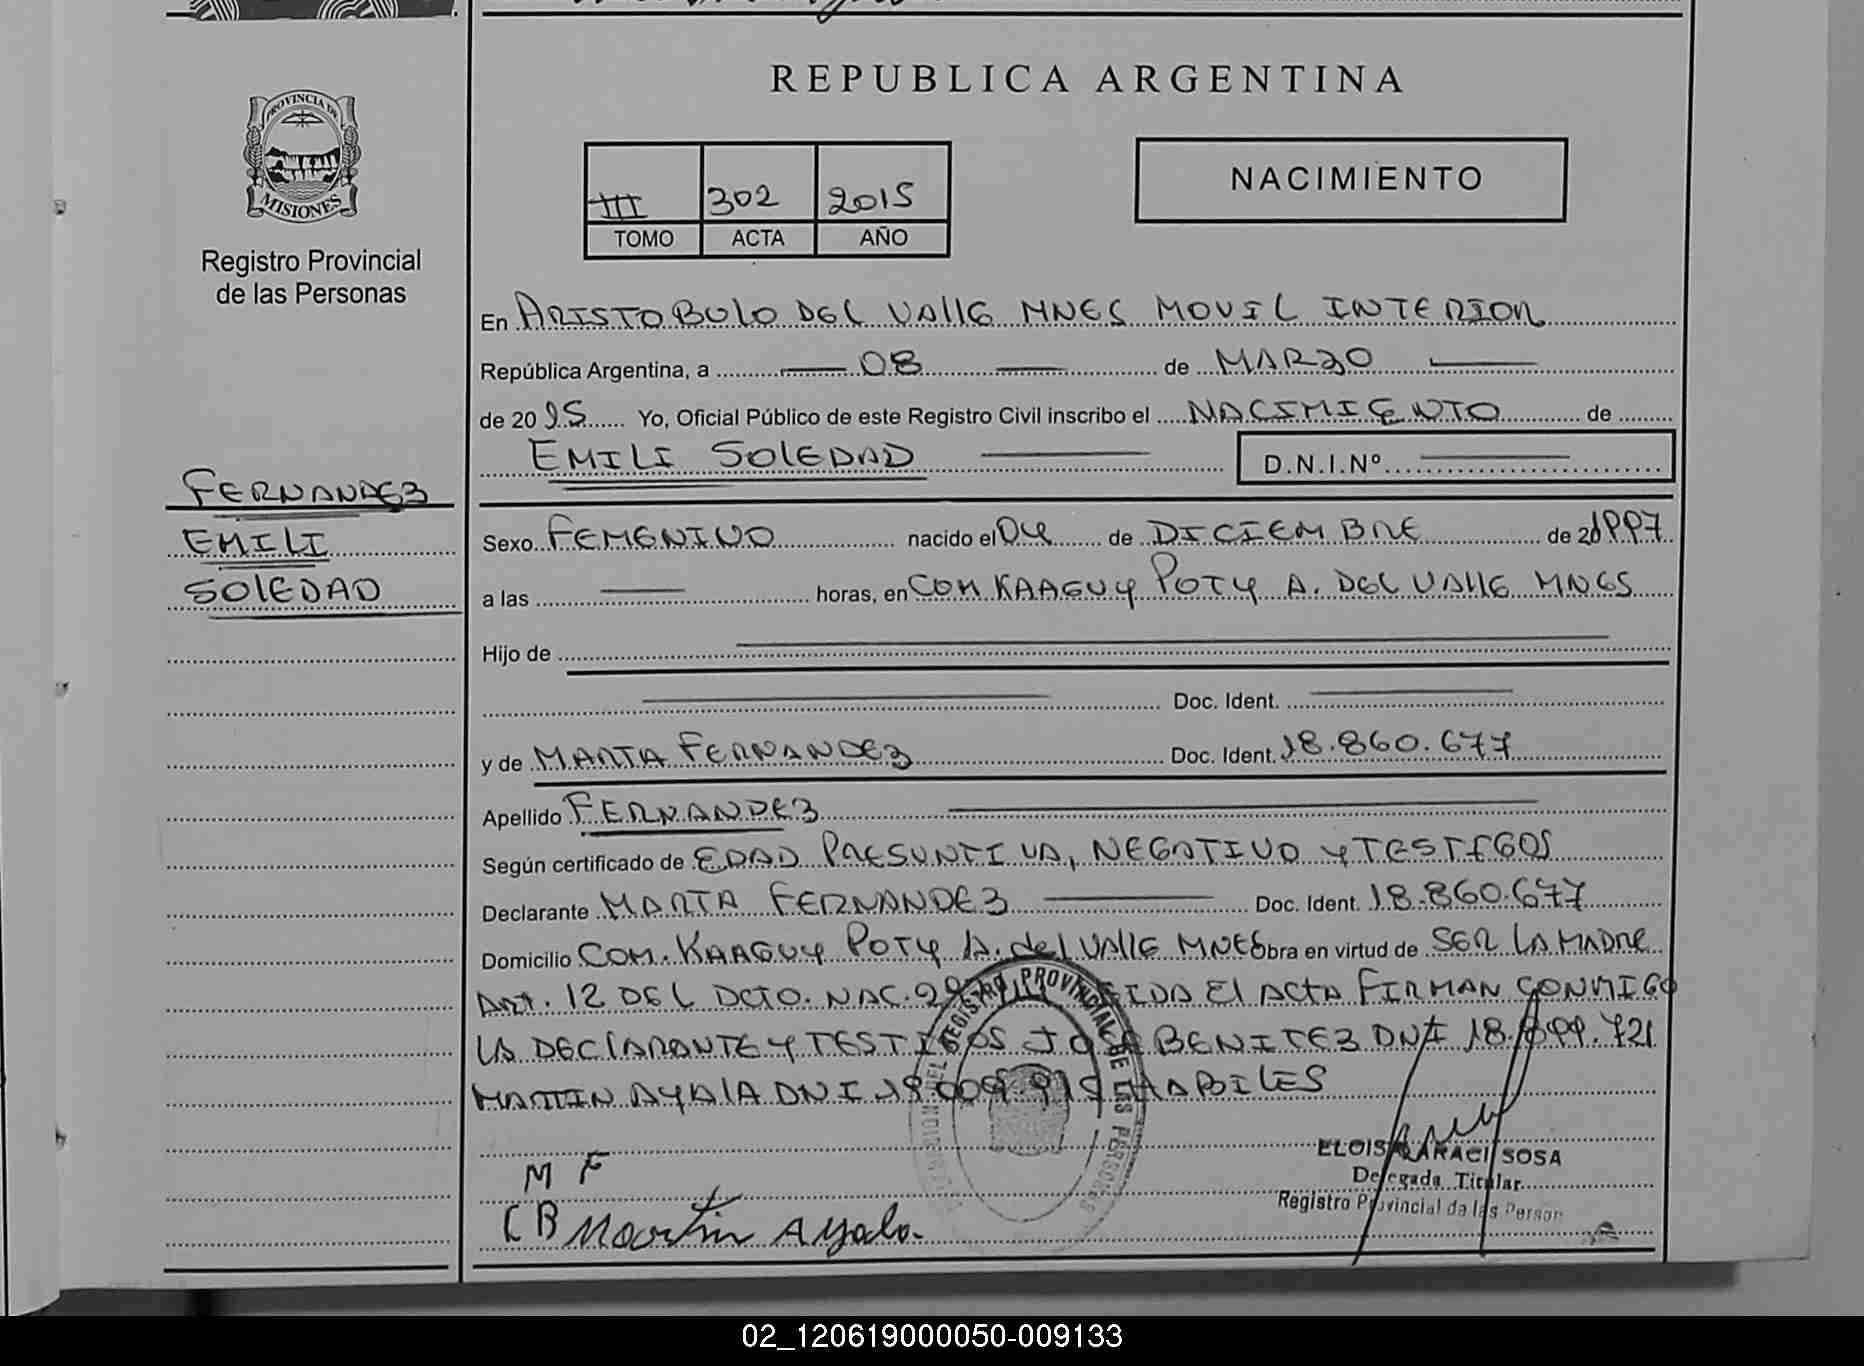 REPUBLICA ARGENTINA
PROVINCIA DE
MISIONES
Registro Provincial
de las Personas
III 302 2015
TOMO ACTA AÑO
NACIMIENTO
En ARISTOBULO DEL VAllE MNES MOVIL INTERIOR
República Argentina, a 08 de MARZO
de 2015 Yo, Oficial Público de este Registro Civil inscribo el NACIMIENTO de
EMILI SOlEDAD D.N.I.Nº
FERNANDEZ
EMILI
SOlEDAD
Sexo FEMENINO nacido el 04 de DICIEMBRE de 1997
a las horas, en COM KAAGUY POTY A. DEL VAllE MNES
Hijo de
Doc. Ident.
y de MARTA FERNANDEZ Doc. Ident. 18.860.677
Apellido FERNANDEZ
Según certificado de EDAD PRESUNTIVA, NEGATIVO y TESTIGOS
Declarante MARTA FERNANDEZ Doc. Ident. 18.860.677
Domicilio COM. KAAGUY POTY A. del VAllE MNES obra en virtud de SER LA MADRE
ART. 12 DEL DCTO. NAC. El ACTA FIRMAN CONMIGO
LA DEClARANTE y TESTIGOS JOSE BENITEZ DNI 18. 721
MARTIN AYAlA DNI HABILES
M F
C B Martin Ayala.
REGISTRO PROVINCIAL DE LAS PERSONAS
ELOISA ARACI SOSA
Delegada Titular
Registro Provincial de las Person
02_120619000050-009133